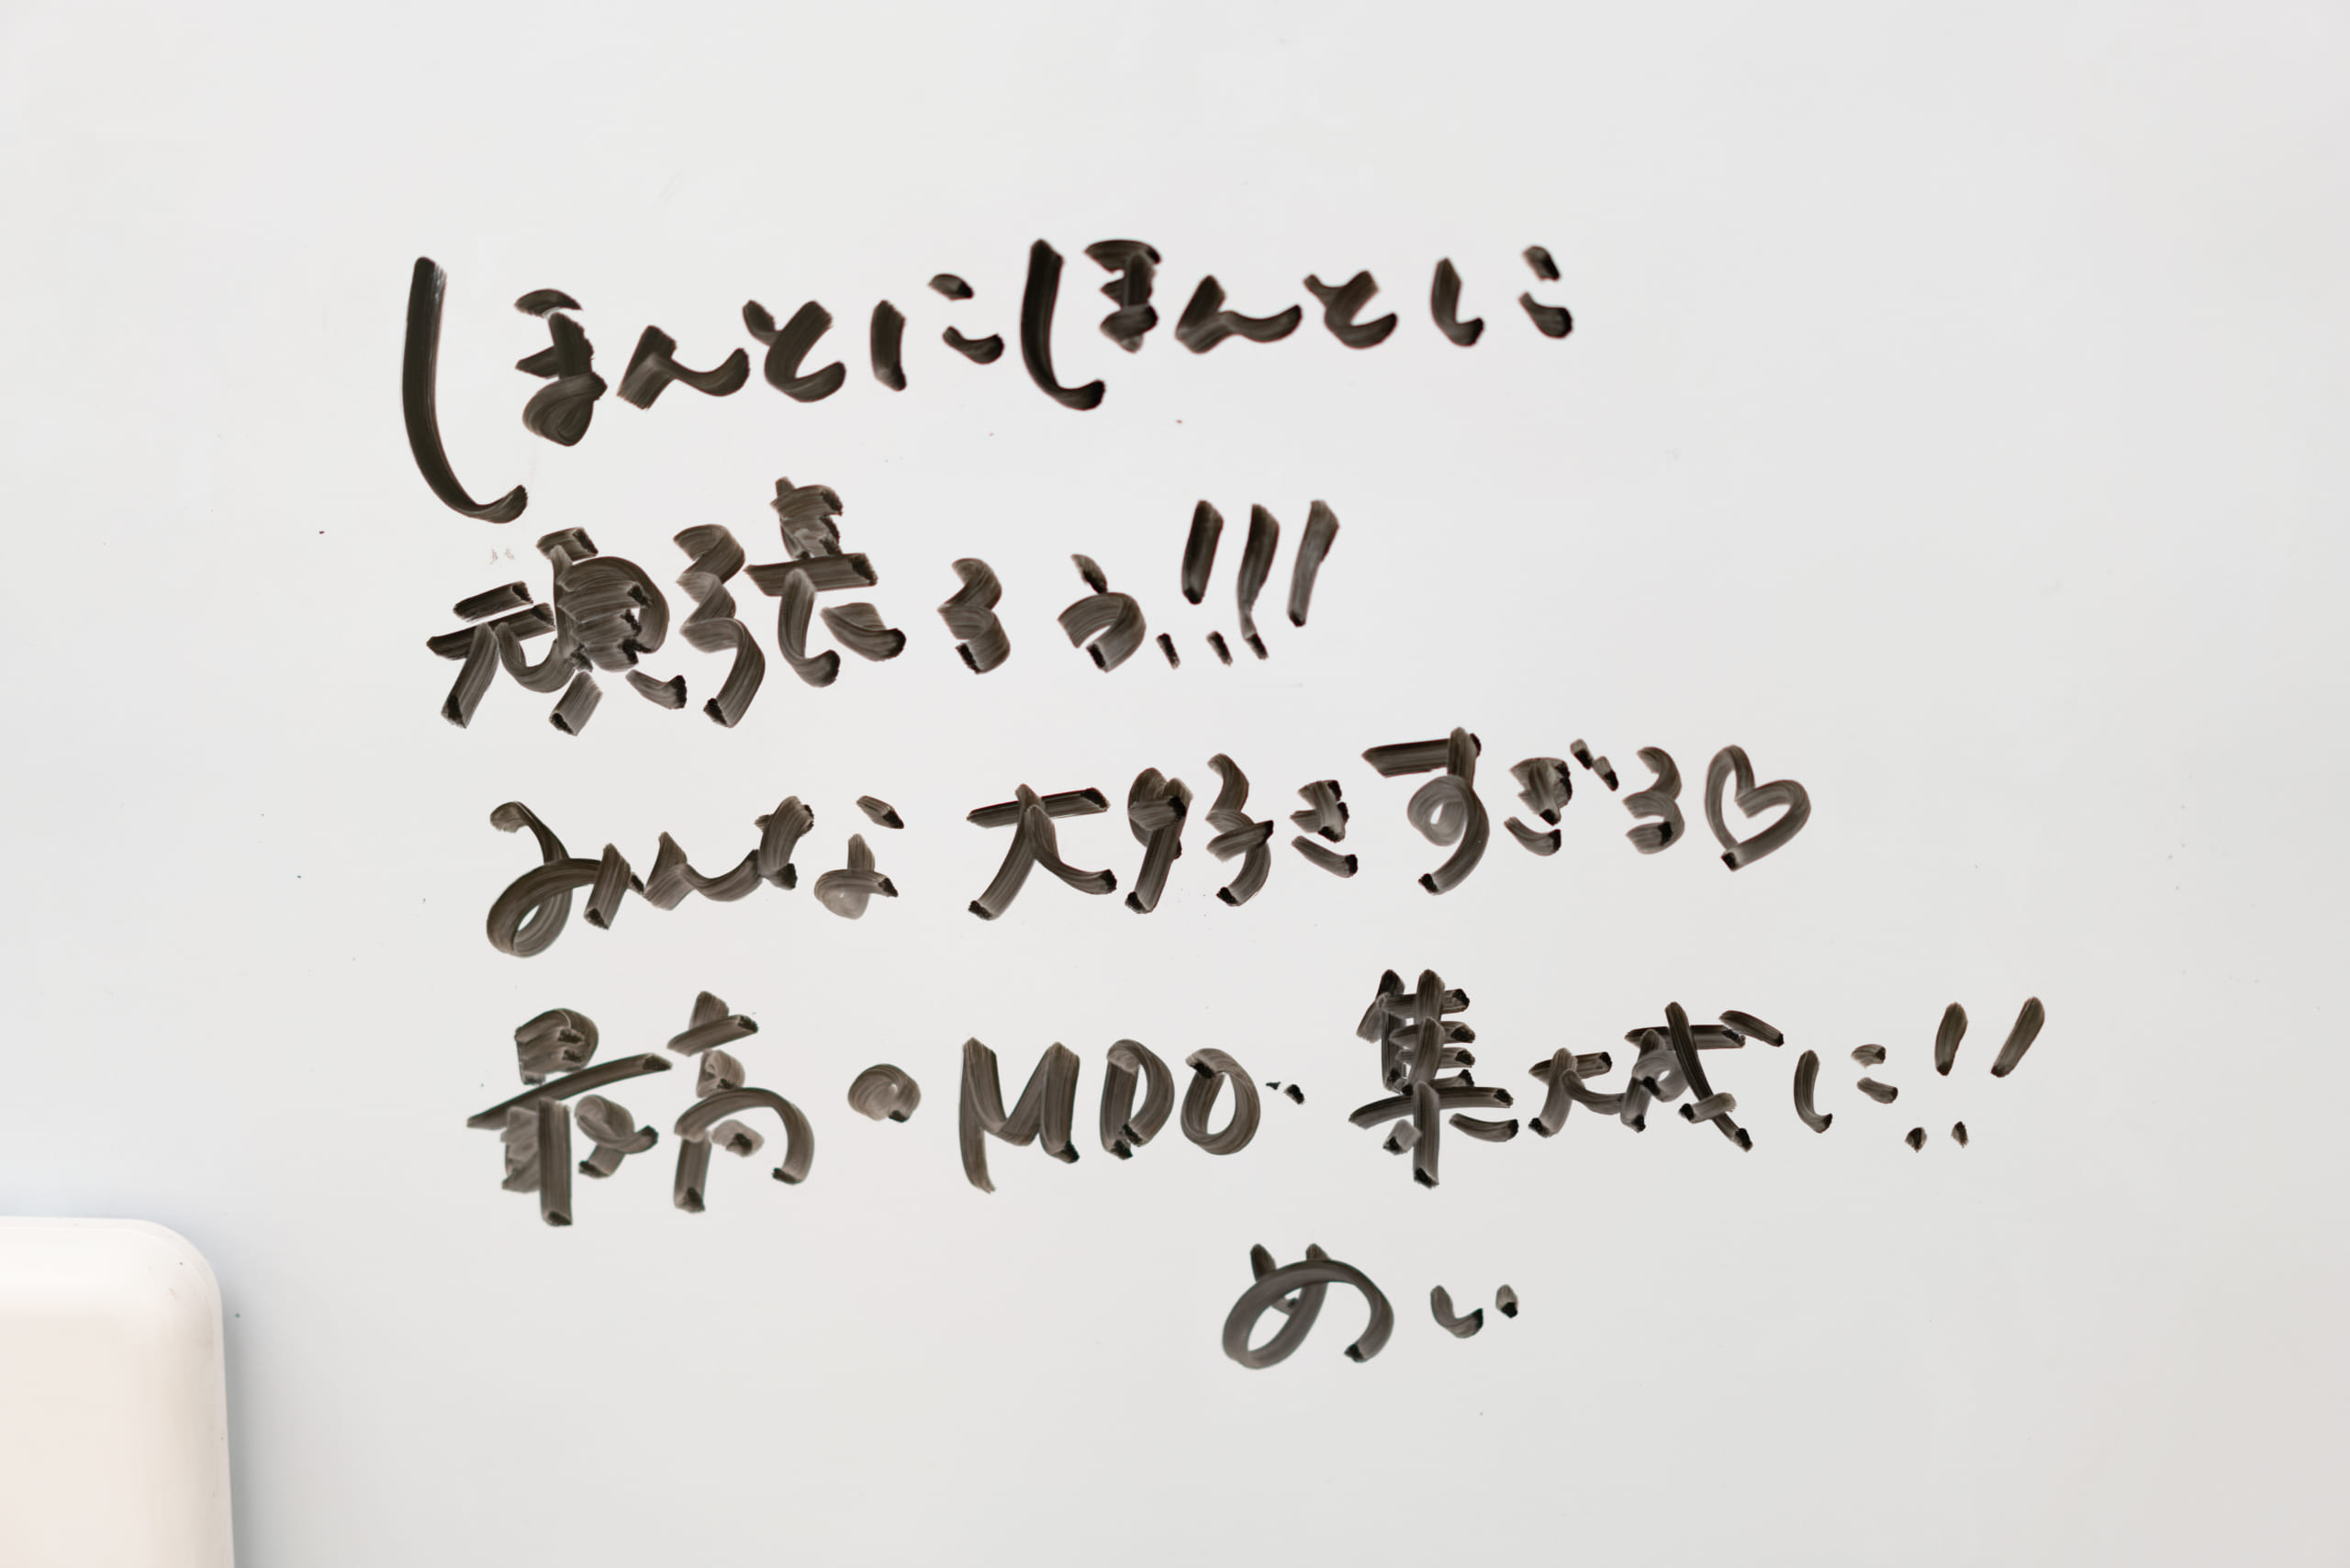 ほんとにほんとに
頑張ろう!!!
みんな大好きすぎる♡
最高のMDO集大成に!!
めい